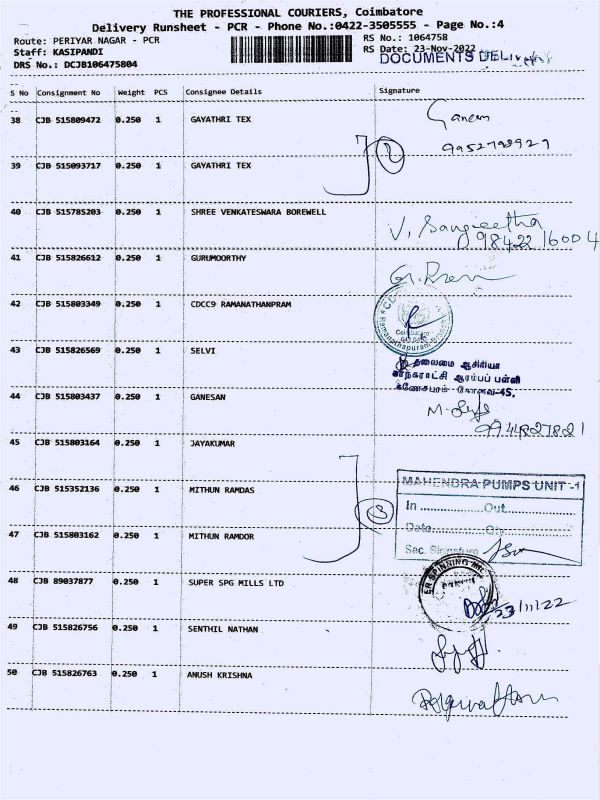 THE PROFESSIONAL COURIERS, Coimbatore
Delivery Runsheet - PCR - Phone No.:0422-3505555 - Page No.:4
Route: PERIYAR NAGAR - PCR RS No.: 1064758
Staff: KASIPANDI RS Date: 23-Nov-2022
DRS No.: DCJB106475804 DOCUMENTS
S No Consignment No Weight PCS Consignee Details Signature
38 CJB 515809472 0.250 1 GAYATHRI TEX
9952798929
39 CJB 515093717 0.250 1 GAYATHRI TEX
2
40 CJB 515785203 0.250 1 SHREE VENKATESWARA BOREWELL
V. Sangeetha
98422 16004
41 CJB 515826612 0.250 1 GURUMOORTHY
42 CJB 515803349 0.250 1 CDCC9 RAMANATHANPRAM
43 CJB 515826569 0.250 1 SELVI
தலைமை ஆசிரியர்
மாநகராட்சி ஆரம்பப் பள்ளி
கணேசபுரம் கோவை-45.
44 CJB 515803437 0.250 1 GANESAN
9944827821
45 CJB 515803164 0.250 1 JAYAKUMAR
46 CJB 515352136 0.250 1 MITHUN RAMDAS
MAHENDRA PUMPS UNIT -1
In ............ Out............
Date............ Qty............
Sec. Signature
3
47 CJB 515803162 0.250 1 MITHUN RAMDOR
48 CJB 89037877 0.250 1 SUPER SPG MILLS LTD
23/11/22
49 CJB 515826756 0.250 1 SENTHIL NATHAN
50 CJB 515826763 0.250 1 ANUSH KRISHNA